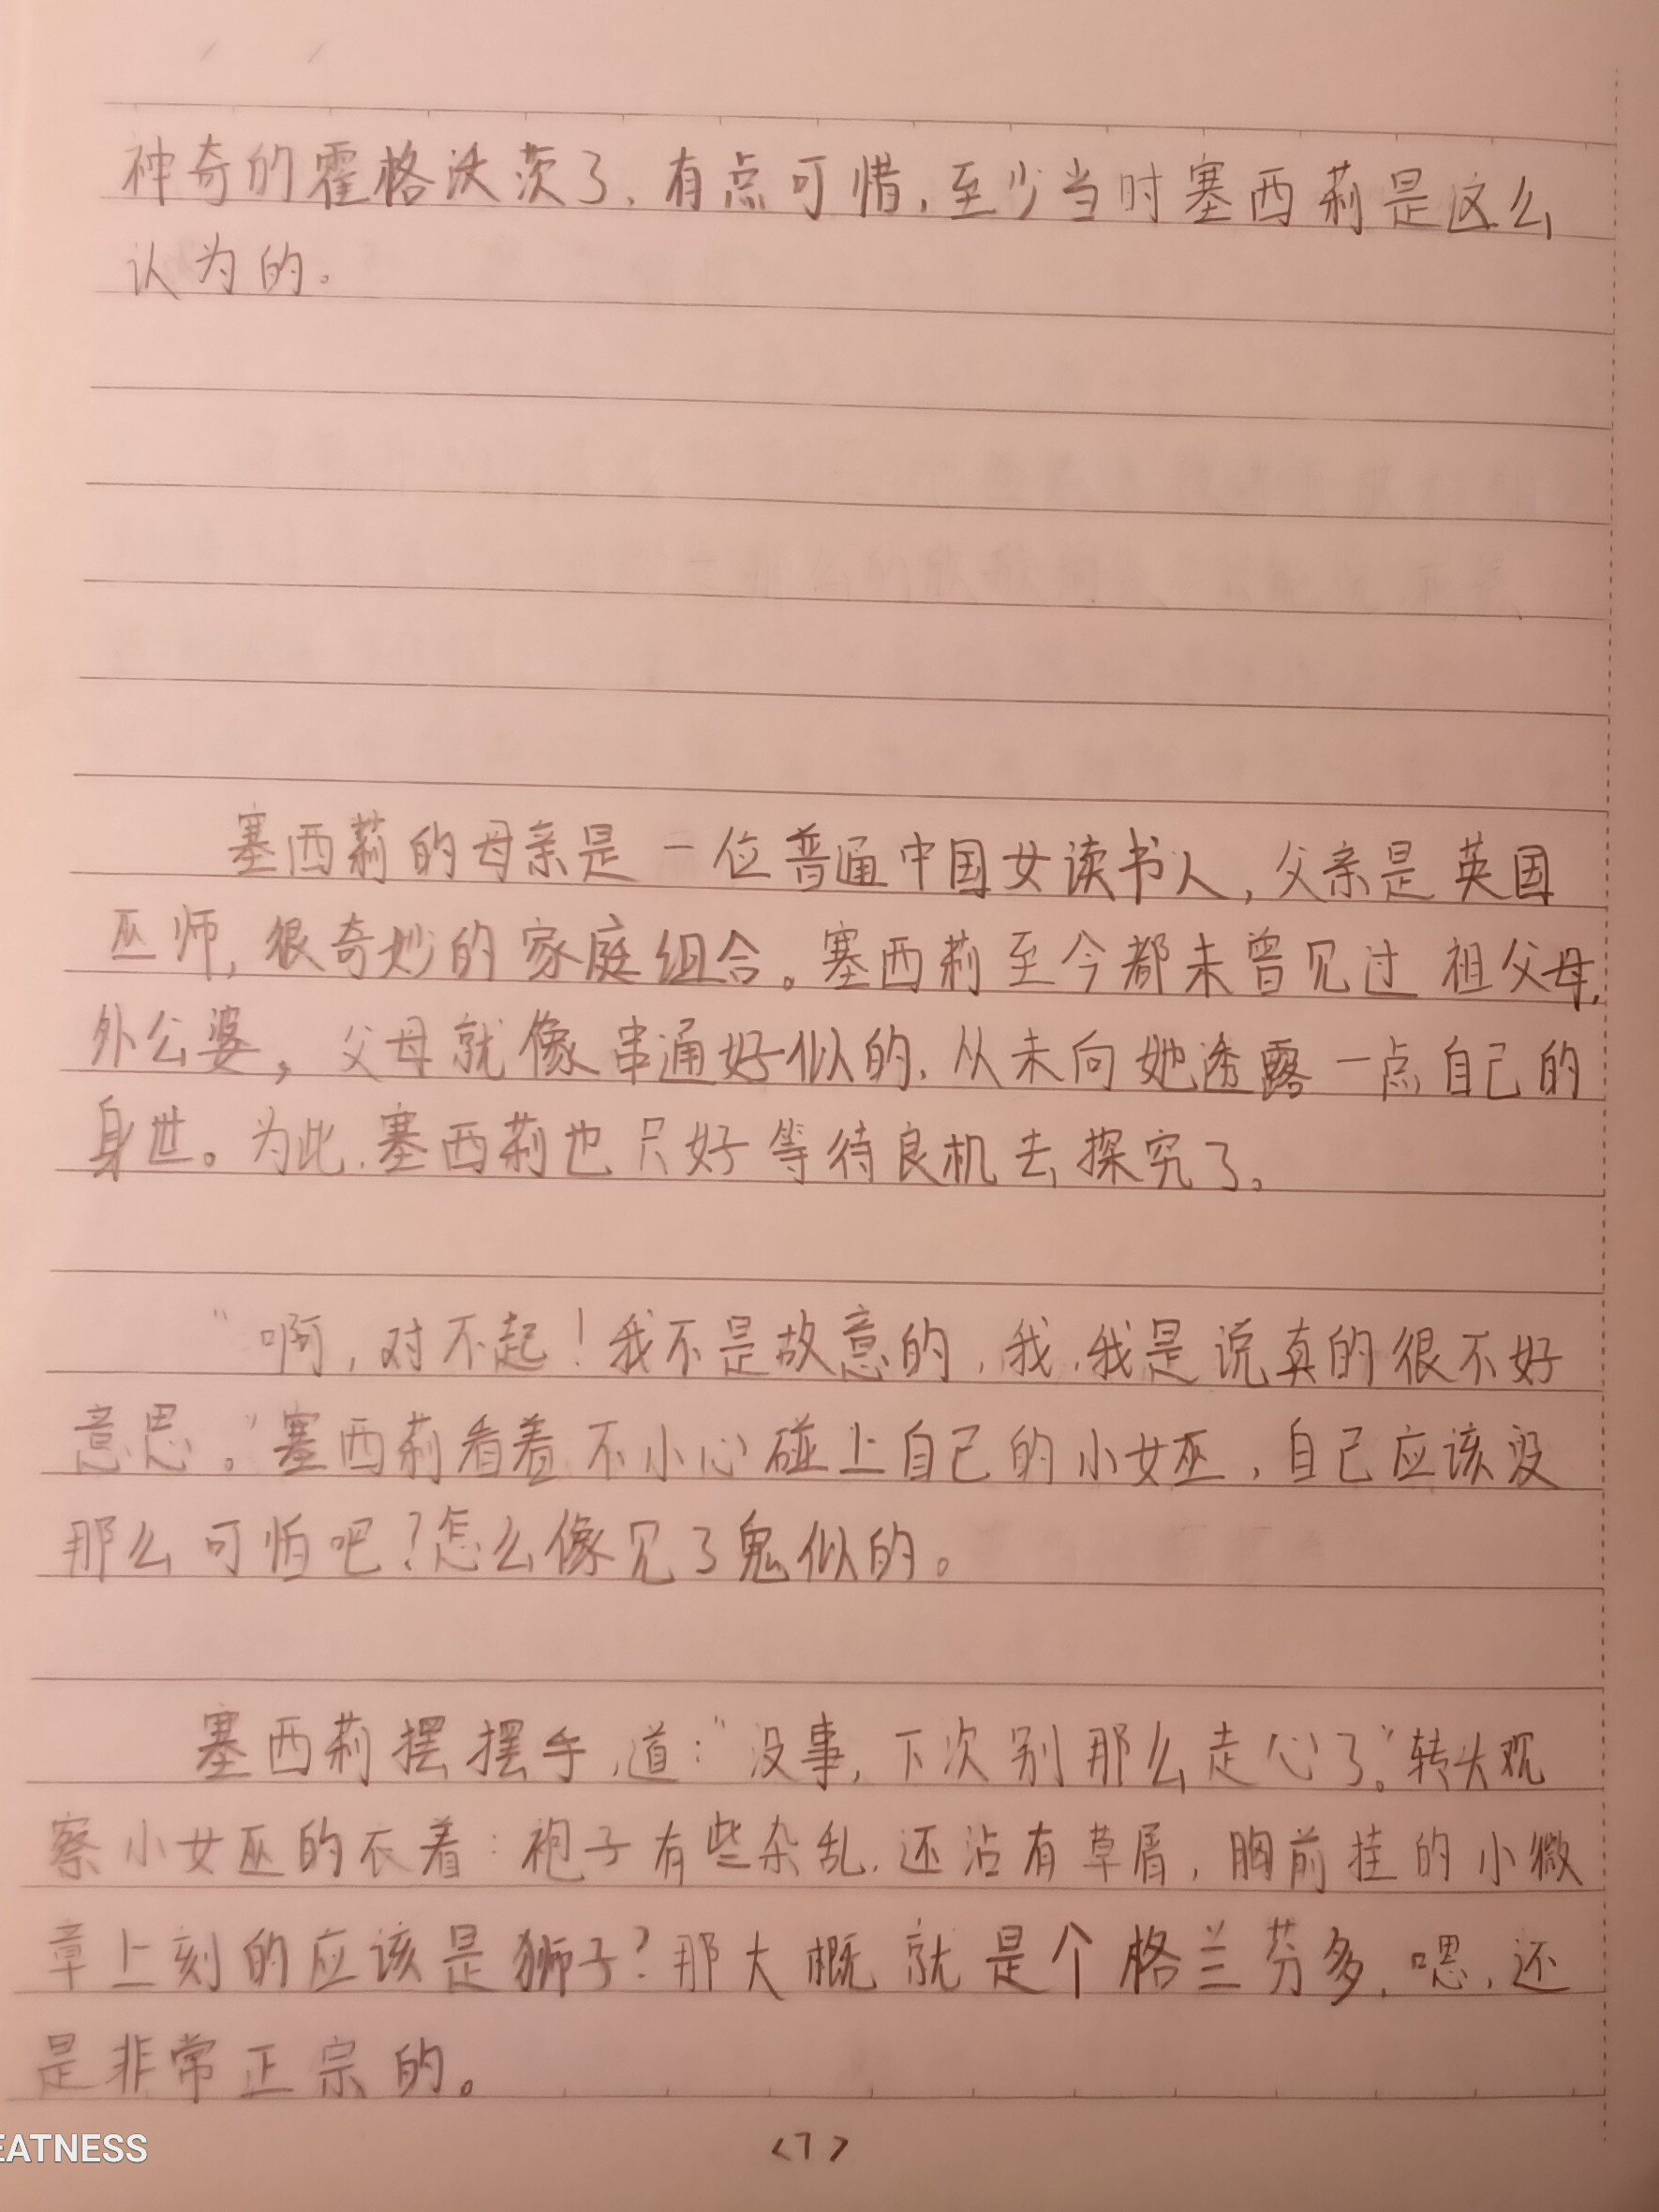 神奇的霍格沃茨了，有点可惜，至少当时塞西莉是这么
认为的。
塞西莉的母亲是一位普通中国女读书人，父亲是英国
巫师，很奇妙的家庭组合。塞西莉至今都未曾见过祖父母，
外公婆，父母就像串通好似的，从未向她透露一点自己的
身世。为此，塞西莉也只好等待良机去探究了。
“啊，对不起！我不是故意的，我，我是说真的很不好
意思。”塞西莉看着不小心碰上自己的小女巫，自己应该没
那么可怕吧？怎么像见了鬼似的。
塞西莉摆摆手，道：“没事，下次别那么走心了。”转头观
察小女巫的衣着：袍子有些杂乱，还沾有草屑，胸前挂的小微
章上刻的应该是狮子？那大概就是个格兰芬多，嗯，还
是非常正宗的。
<7>
EATNESS